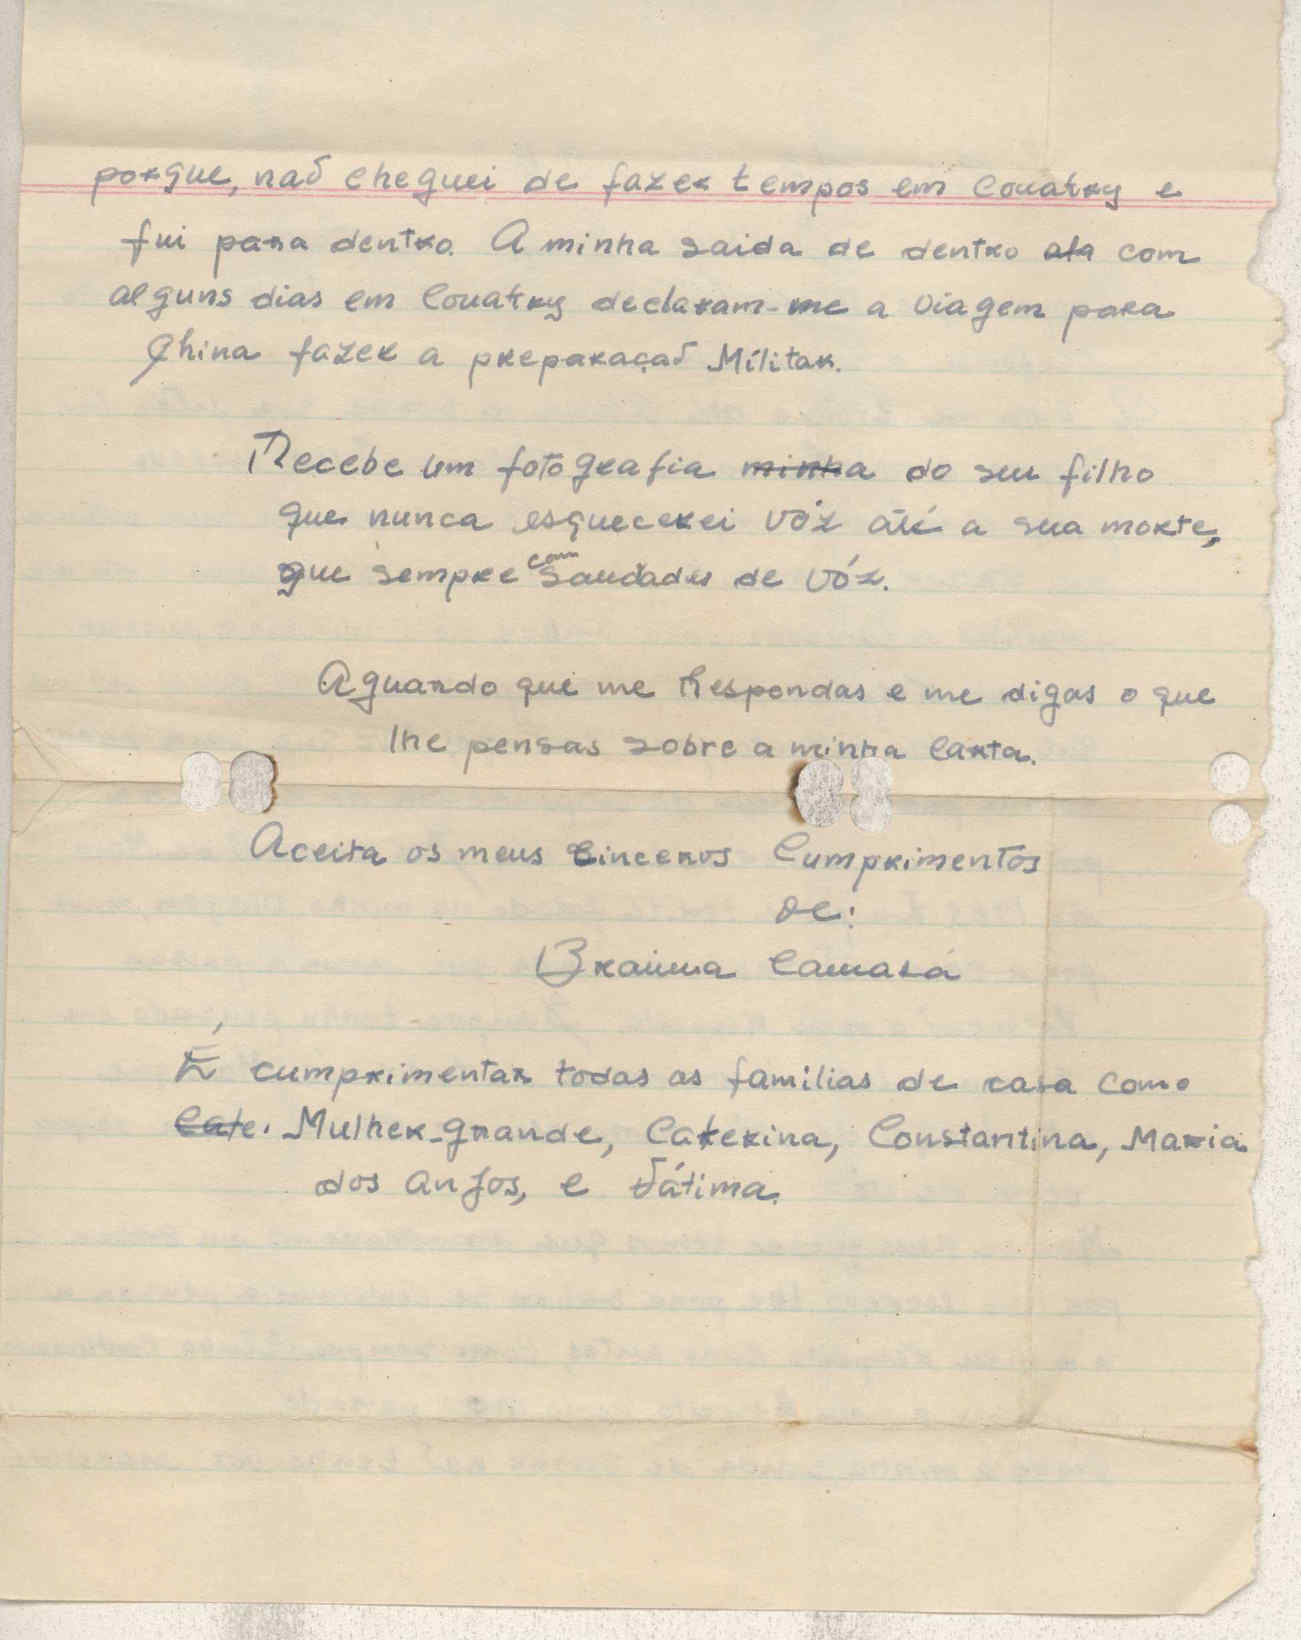 porque, naõ cheguei de fazer tempos em Conatry e
fui para dentro. A minha saida de dentro ata com
alguns dias em Conatry declaram-me a viagem para
China fazer a preparaçaõ Mílitar.
Recebe um fotografia minha do seu filho
que nunca esquecerei vóz até a sua morte,
que sempre com saudades de vóz.
Aguardo que me Respondas e me digas o que
lhe pensas sobre a minha Carta.
Aceita os meus Cinceros Cumprimentos
De:
Braima Camará
É cumprimentar todas as familias de casa como
Cate. Mulher-grande, Caterina, Constantina, Maria
dos Anjos, e Fátima.